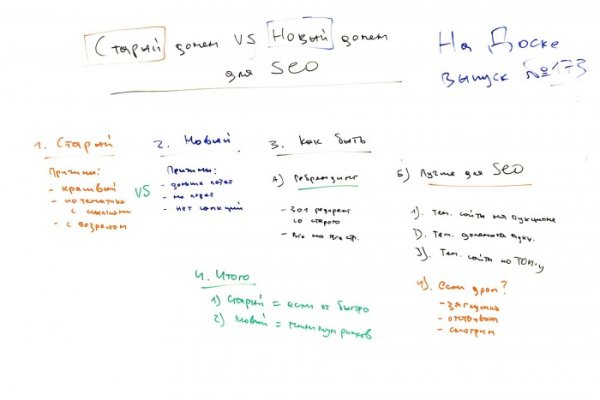 Старый домен VS Новый домен
для SEO
На Доске
выпуск №173
1. Старый
Причины:
- красивый
- по тематике
с ссылками
- с возрастом
VS
2. Новый
Причины:
- дольше
- не
- нет санкций
3. Как быть
А) Ребрендинг
- 301 редирект
со старого
- Все на
Б) Лучше для SEO
1). Тем. сайты на аукционе
2). Тем. домены
3). Тем. сайты по ТОП-у
4). Если дроп?
- загрузка
- отстойник
- смотрим
4. Итого
1) Старый = если оч быстро
2) Новый = минимум рисков